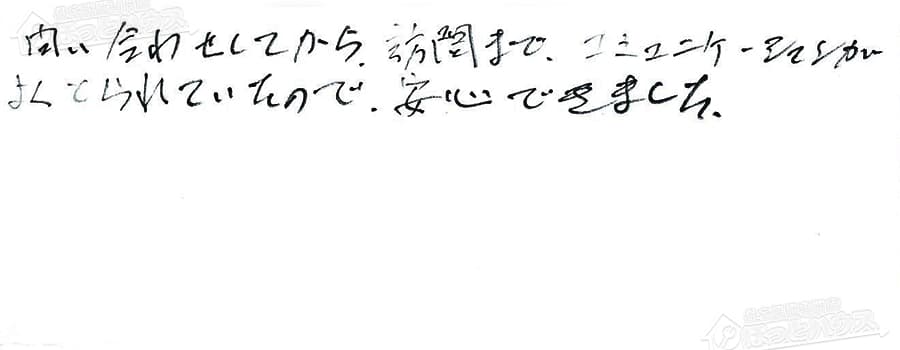 問い合わせしてから、訪問まで、コミュニケーションが
よくとられていたので、安心できました。